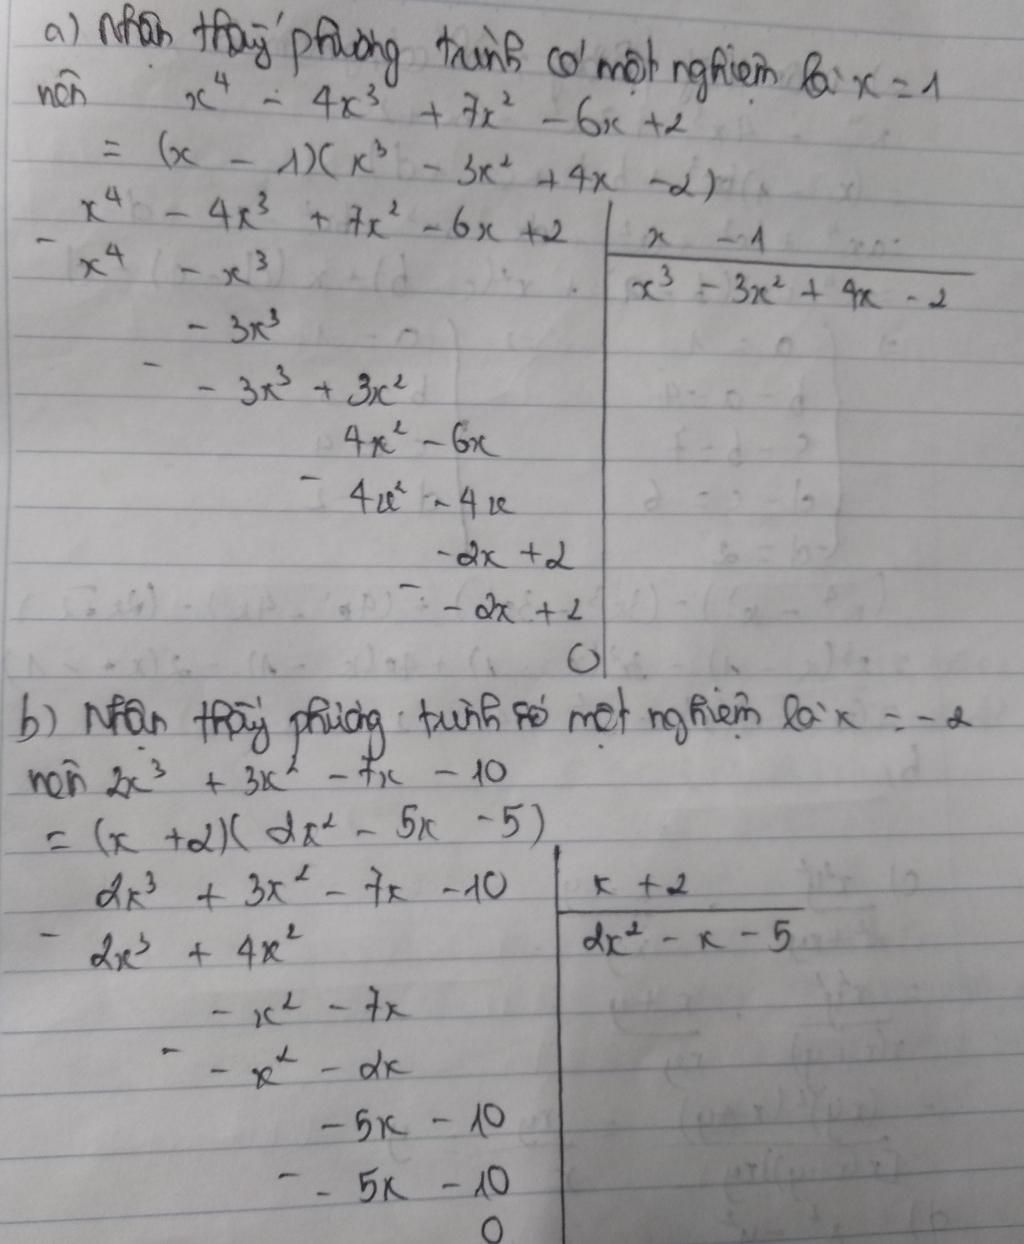 a) Nhận thấy phương trình có một nghiệm là x = 1
nên x⁴ - 4x³ + 7x² - 6x + 2
= (x - 1)(x³ - 3x² + 4x - 2)
x⁴ - 4x³ + 7x² - 6x + 2 | x - 1
- x⁴ - x³ | x³ - 3x² + 4x - 2
- 3x³
- - 3x³ + 3x²
4x² - 6x
- 4x² - 4x
-2x + 2
- - 2x + 2
0
b) Nhận thấy phương trình có một nghiệm là x = -2
nên 2x³ + 3x² - 7x - 10
= (x + 2)(2x² - 5x - 5)
2x³ + 3x² - 7x - 10 | x + 2
- 2x³ + 4x² | 2x² - x - 5
- x² - 7x
- - x² - 2x
- 5x - 10
- - 5x - 10
0